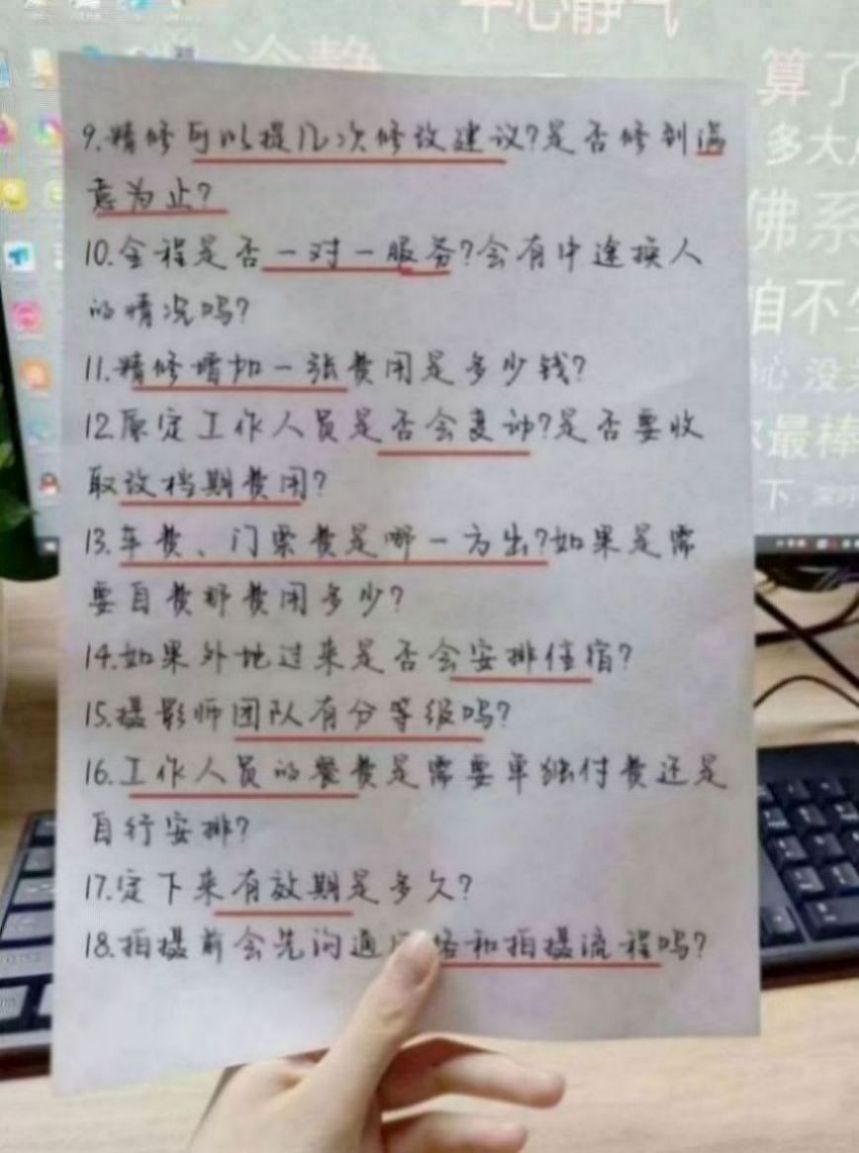 平心静气
冷静
算了
多大
佛系
怕不
没
最棒
下
9.精修可以提几次修改建议?是否修到满
意为止?
10.全程是否一对一服务?会有中途换人
的情况吗?
11.精修增加一张费用是多少钱?
12原定工作人员是否会变动?是否要收
取改档期费用?
13.车费、门票费是哪一方出?如果是需
要自费那费用多少?
14.如果外地过来是否会安排住宿?
15.摄影师团队有分等级吗?
16.工作人员的餐费是需要单独付费还是
自行安排?
17.定下来有效期是多久?
18.拍摄前会先沟通风格和拍摄流程吗?